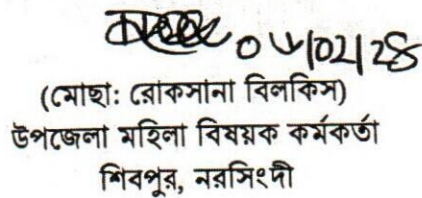 ০৬/০২/২৪
(মোছা: রোকসানা বিলকিস)
উপজেলা মহিলা বিষয়ক কর্মকর্তা
শিবপুর, নরসিংদী